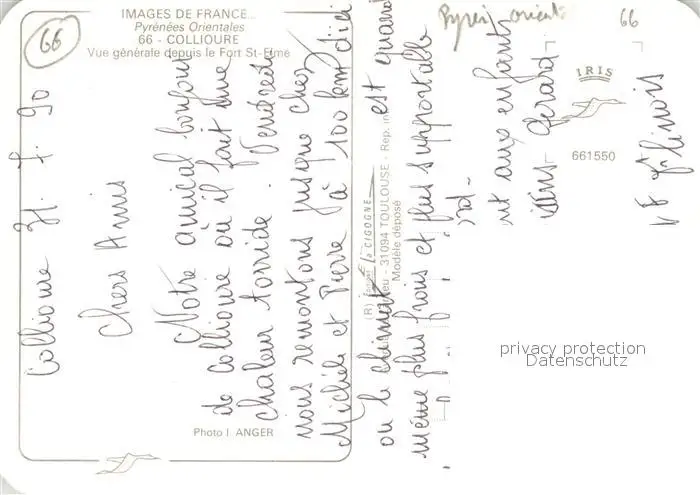 66
IMAGES DE FRANCE...
Pyrénées Orientales
66 - COLLIOURE
Vue générale depuis le Fort St-Elme
Collioure 31.7.90
Chers Amis
Notre amical bonjour
de Collioure où il fait une
chaleur torride. Vendredi
nous remontons jusque chez
Michèle et Pierre à 100 km d'ici
où le climat est quand
même plus frais et plus supportable
Photo I. ANGER
(R) LA CIGOGNE
31094 TOULOUSE - Rep. in
Modèle déposé
Pyren orient
66
IRIS
661550
aux enfants
Gérard
privacy protection
Datenschutz